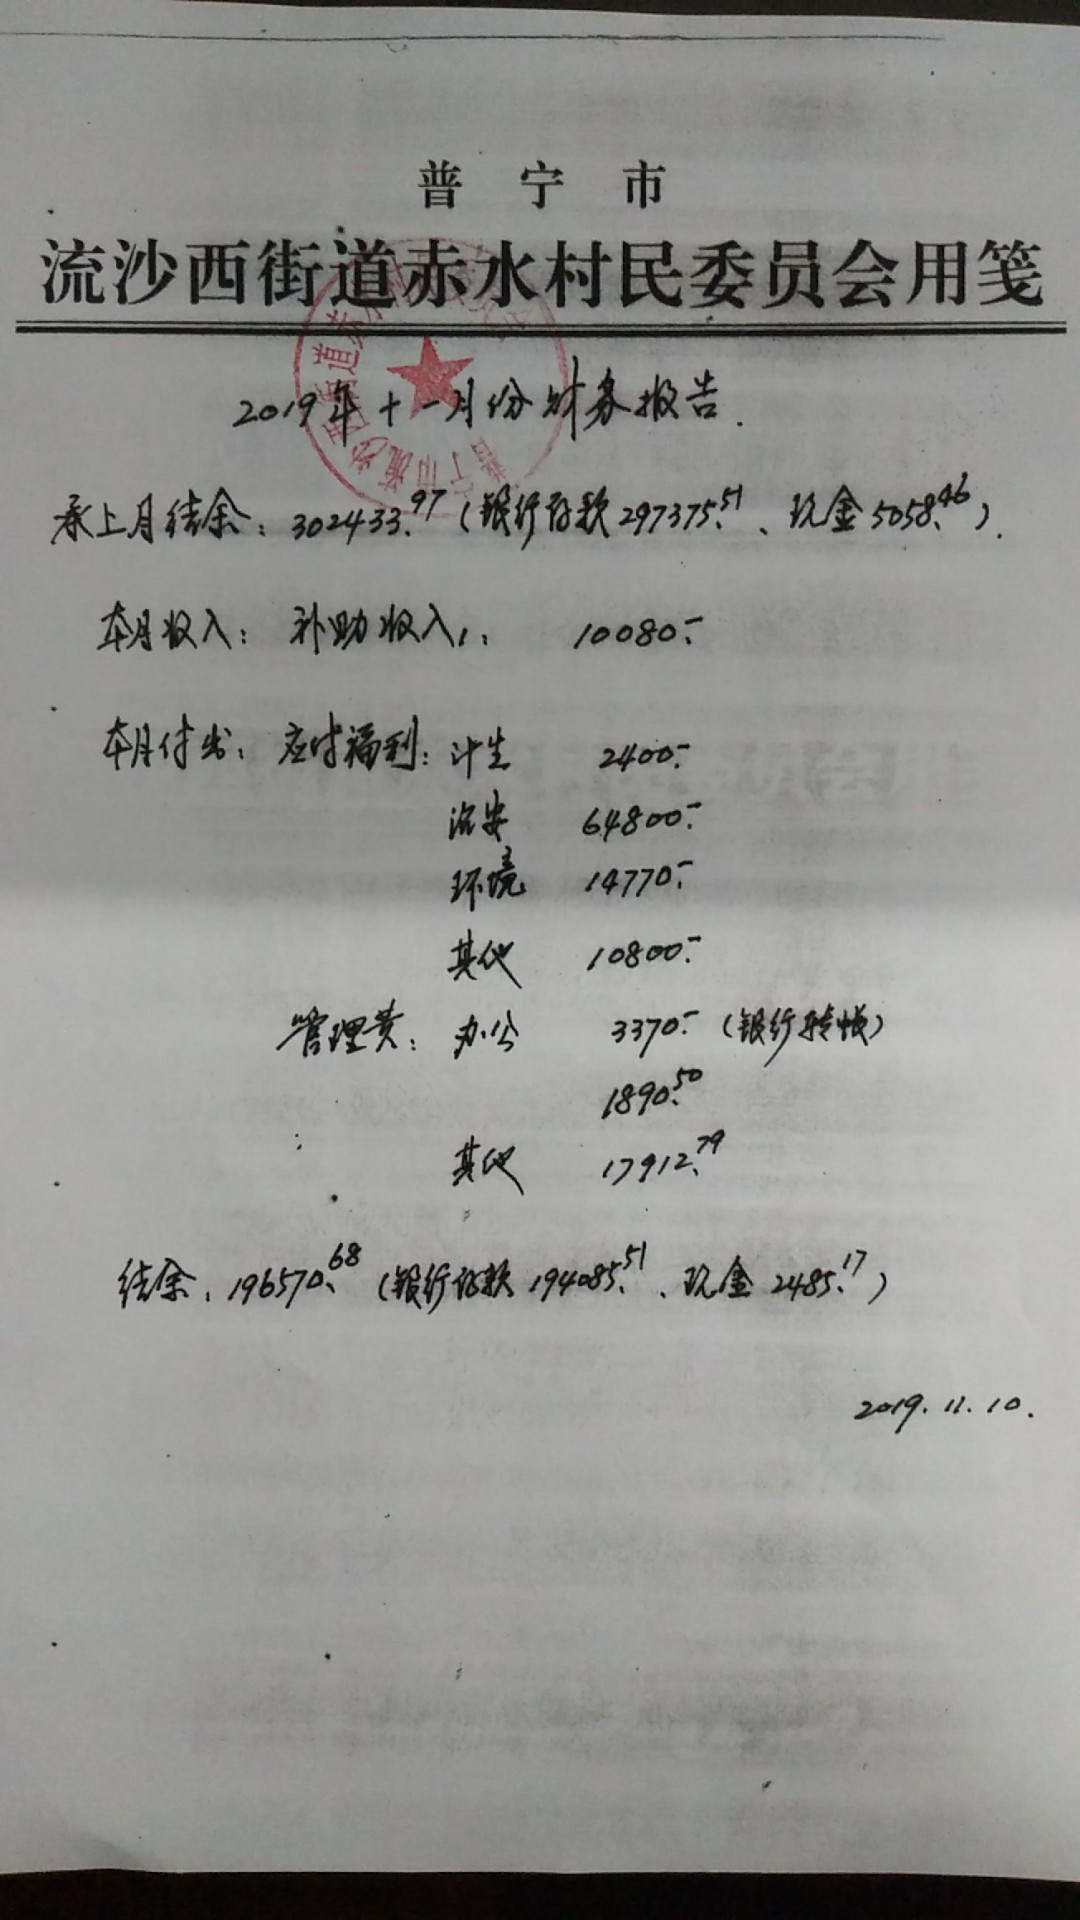 普宁市
流沙西街道赤水村民委员会用笺
2019年十一月份财务报告.
承上月结余: 302433.97 (银行存款297375.51、现金5058.46).
本月收入: 补助收入: 10080.-
本月付出: 应付福利: 计生 2400.-
治安 64800.-
环境 14770.-
其他 10800.-
管理费: 办公 3370.- (银行转帐)
1890.50
其他 17912.79
结余: 196570.68 (银行存款194085.51、现金2485.17)
2019.11.10.